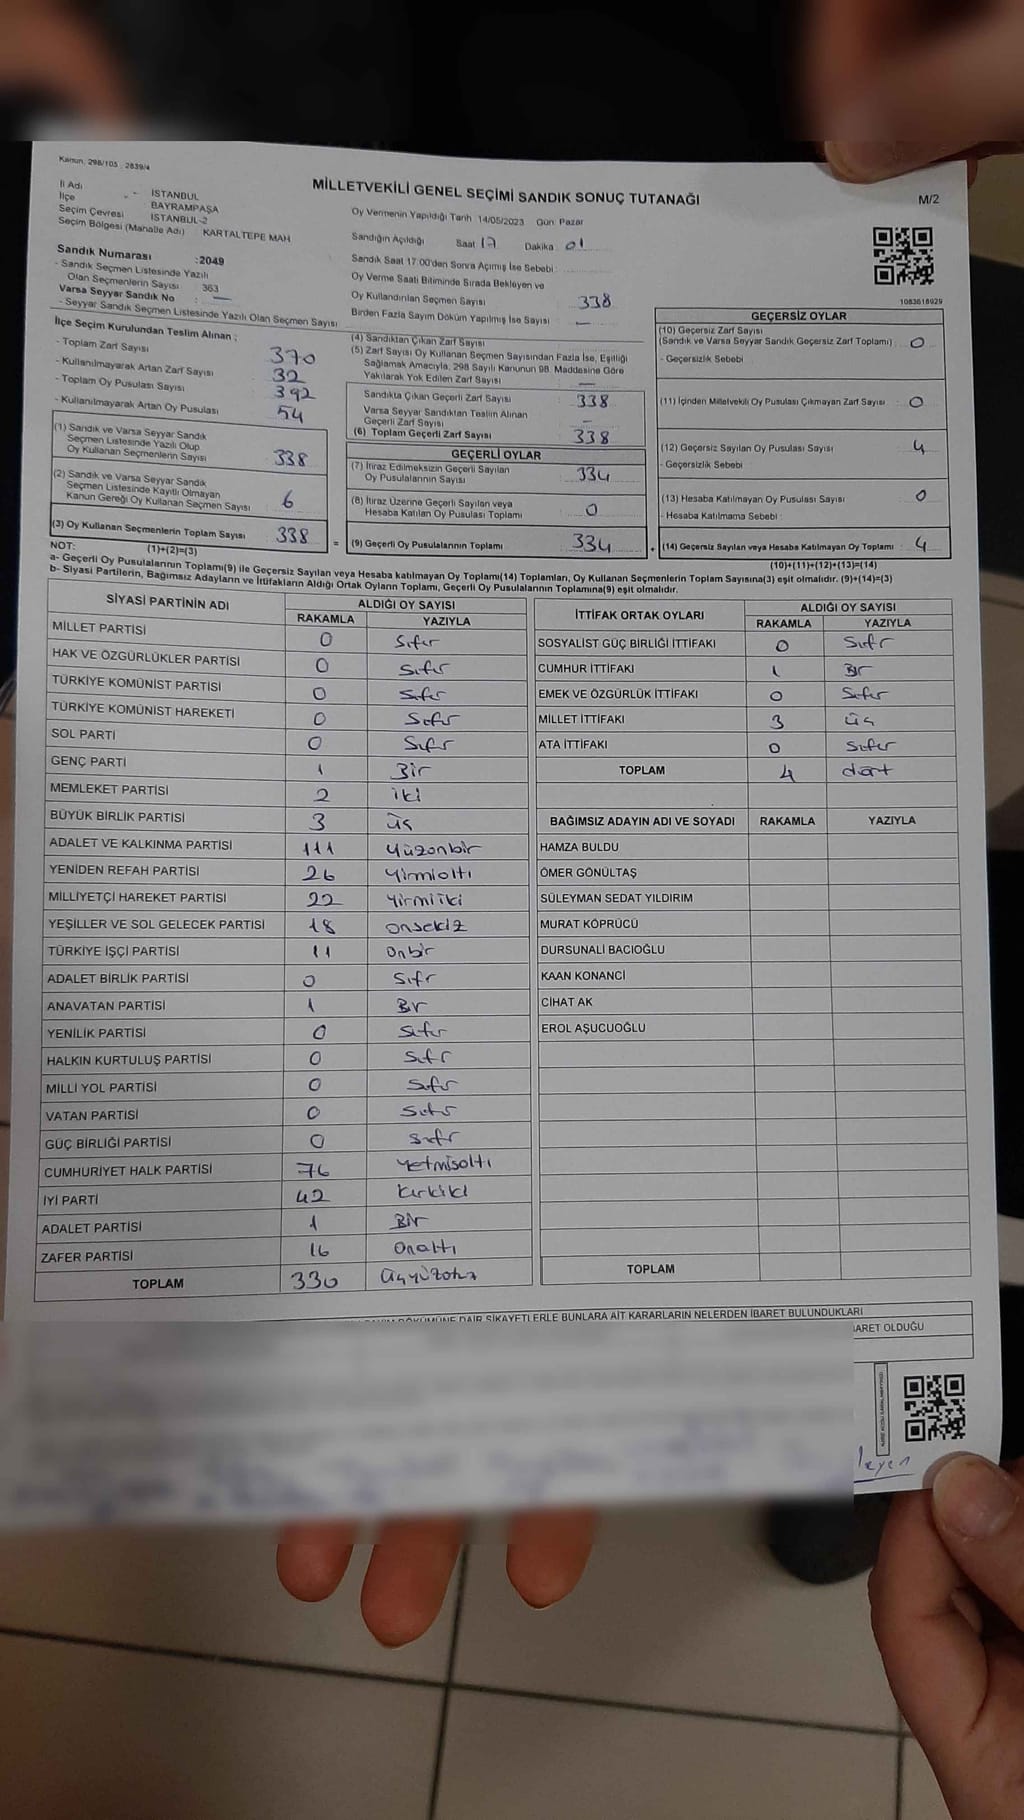 Kanun: 298/105 - 2839/4
MİLLETVEKİLİ GENEL SEÇİMİ SANDIK SONUÇ TUTANAĞI
M/2
İl Adı : İSTANBUL
İlçe : BAYRAMPAŞA
Seçim Çevresi İSTANBUL-2
Seçim Bölgesi (Mahalle Adı) : KARTALTEPE MAH
Oy Vermenin Yapıldığı Tarih 14/05/2023 Gün: Pazar
Sandığın Açıldığı Saat 17 Dakika : 01
Sandık Saat 17:00'den Sonra Açımış İse Sebebi :
Oy Verme Saati Bitiminde Sırada Bekleyen ve
Oy Kullandırılan Seçmen Sayısı 338
Birden Fazla Sayım Döküm Yapılmış İse Sayısı : —
Sandık Numarası :2049
- Sandık Seçmen Listesinde Yazılı
Olan Seçmenlerin Sayısı : 363
Varsa Seyyar Sandık No : —
- Seyyar Sandık Seçmen Listesinde Yazılı Olan Seçmen Sayısı
1083618929
İlçe Seçim Kurulundan Teslim Alınan :
- Toplam Zarf Sayısı 370
- Kullanılmayarak Artan Zarf Sayısı 32
- Toplam Oy Pusulası Sayısı 392
- Kullanılmayarak Artan Oy Pusulası 54
(1) Sandık ve Varsa Seyyar Sandık
Seçmen Listesinde Yazılı Olup
Oy Kullanan Seçmenlerin Sayısı 338
(2) Sandık ve Varsa Seyyar Sandık
Seçmen Listesinde Kayıtlı Olmayan
Kanun Gereği Oy Kullanan Seçmen Sayısı : 6
(3) Oy Kullanan Seçmenlerin Toplam Sayısı 338
(1)+(2)=(3)
(4) Sandıktan Çıkan Zarf Sayısı
(5) Zarf Sayısı Oy Kullanan Seçmen Sayısından Fazla İse, Eşitliği
Sağlamak Amacıyla, 298 Sayılı Kanunun 98. Maddesine Göre
Yakılarak Yok Edilen Zarf Sayısı —
Sandıkta Çıkan Geçerli Zarf Sayısı : 338
Varsa Seyyar Sandıktan Teslim Alınan
Geçerli Zarf Sayısı : —
(6) Toplam Geçerli Zarf Sayısı 338
GEÇERLİ OYLAR
(7) İtiraz Edilmeksizin Geçerli Sayılan
Oy Pusulalarının Sayısı : 334
(8) İtiraz Üzerine Geçerli Sayılan veya
Hesaba Katılan Oy Pusulası Toplamı : 0
= (9) Geçerli Oy Pusulalarının Toplamı : 334
GEÇERSİZ OYLAR
(10) Geçersiz Zarf Sayısı
(Sandık ve Varsa Seyyar Sandık Geçersiz Zarf Toplamı) : 0
- Geçersizlik Sebebi
(11) İçinden Milletvekili Oy Pusulası Çıkmayan Zarf Sayısı : 0
(12) Geçersiz Sayılan Oy Pusulası Sayısı : 4
- Geçersizlik Sebebi
(13) Hesaba Katılmayan Oy Pusulası Sayısı : 0
- Hesaba Katılmama Sebebi :
(14) Geçersiz Sayılan veya Hesaba Katılmayan Oy Toplamı : 4
(10)+(11)+(12)+(13)=(14)
NOT:
a- Geçerli Oy Pusulalarının Toplamı(9) ile Geçersiz Sayılan veya Hesaba katılmayan Oy Toplamı(14) Toplamları, Oy Kullanan Seçmenlerin Toplam Sayısına(3) eşit olmalıdır. (9)+(14)=(3)
b- Siyasi Partilerin, Bağımsız Adayların ve İttifakların Aldığı Ortak Oyların Toplamı, Geçerli Oy Pusulalarının Toplamına(9) eşit olmalıdır.
SİYASİ PARTİNİN ADI ALDIĞI OY SAYISI
RAKAMLA YAZIYLA
MİLLET PARTİSİ 0 Sıfır
HAK VE ÖZGÜRLÜKLER PARTİSİ 0 Sıfır
TÜRKİYE KOMÜNİST PARTİSİ 0 Sıfır
TÜRKİYE KOMÜNİST HAREKETİ 0 Sıfır
SOL PARTİ 0 Sıfır
GENÇ PARTİ 1 Bir
MEMLEKET PARTİSİ 2 iki
BÜYÜK BİRLİK PARTİSİ 3 üç
ADALET VE KALKINMA PARTİSİ 111 yüzonbir
YENİDEN REFAH PARTİSİ 26 Yirmialtı
MİLLİYETÇİ HAREKET PARTİSİ 22 yirmiiki
YEŞİLLER VE SOL GELECEK PARTİSİ 18 onsekiz
TÜRKİYE İŞÇİ PARTİSİ 11 onbir
ADALET BİRLİK PARTİSİ 0 Sıfır
ANAVATAN PARTİSİ 1 Bir
YENİLİK PARTİSİ 0 Sıfır
HALKIN KURTULUŞ PARTİSİ 0 Sıfır
MİLLİ YOL PARTİSİ 0 Sıfır
VATAN PARTİSİ 0 Sıfır
GÜÇ BİRLİĞİ PARTİSİ 0 Sıfır
CUMHURİYET HALK PARTİSİ 76 yetmişaltı
İYİ PARTİ 42 kırkiki
ADALET PARTİSİ 1 Bir
ZAFER PARTİSİ 16 onaltı
TOPLAM 330 üçyüzotuz
İTTİFAK ORTAK OYLARI ALDIĞI OY SAYISI
RAKAMLA YAZIYLA
SOSYALİST GÜÇ BİRLİĞİ İTTİFAKI 0 Sıfır
CUMHUR İTTİFAKI 1 Bir
EMEK VE ÖZGÜRLÜK İTTİFAKI 0 Sıfır
MİLLET İTTİFAKI 3 üç
ATA İTTİFAKI 0 Sıfır
TOPLAM 4 dört
BAĞIMSIZ ADAYIN ADI VE SOYADI RAKAMLA YAZIYLA
HAMZA BULDU
ÖMER GÖNÜLTAŞ
SÜLEYMAN SEDAT YILDIRIM
MURAT KÖPRÜCÜ
DURSUNALİ BACIOĞLU
KAAN KONANCİ
CİHAT AK
EROL AŞUCUOĞLU
TOPLAM
DAİR ŞİKAYETLERLE BUNLARA AİT KARARLARIN NELERDEN İBARET BULUNDUKLARI
OLDUĞU